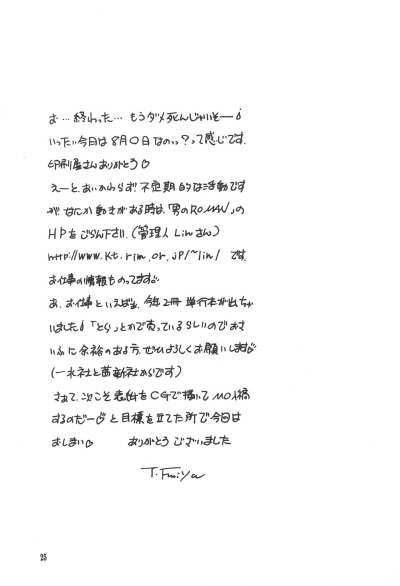 お…終わった…もうダメ死んじゃいそー
いったい今日は8月0日なのっ?って感じです.
印刷屋さんありがとう♡
えーと、あいかわらず不定期的な活動です
が なにか動きがある時は、「男のROMAN」の
HPをごらん下さい.(管理人Linさん)
http://www.kt.rim.or.jp/~lin/ です.
お仕事の情報ものってます
あ、お仕事といえば、今年2冊単行本が出ちゃ
いました!「とら」とかで売っているらしいのでおさ
いふに余裕のある方、ぜひよろしくお願いします
(一水社と茜新社からです)
さぁて、次こそ表紙をCGで描いてMO入稿
するのだー♡と目標を立てた所で今日は
おしまい♡ ありがとうございました
T.Fujiya
25